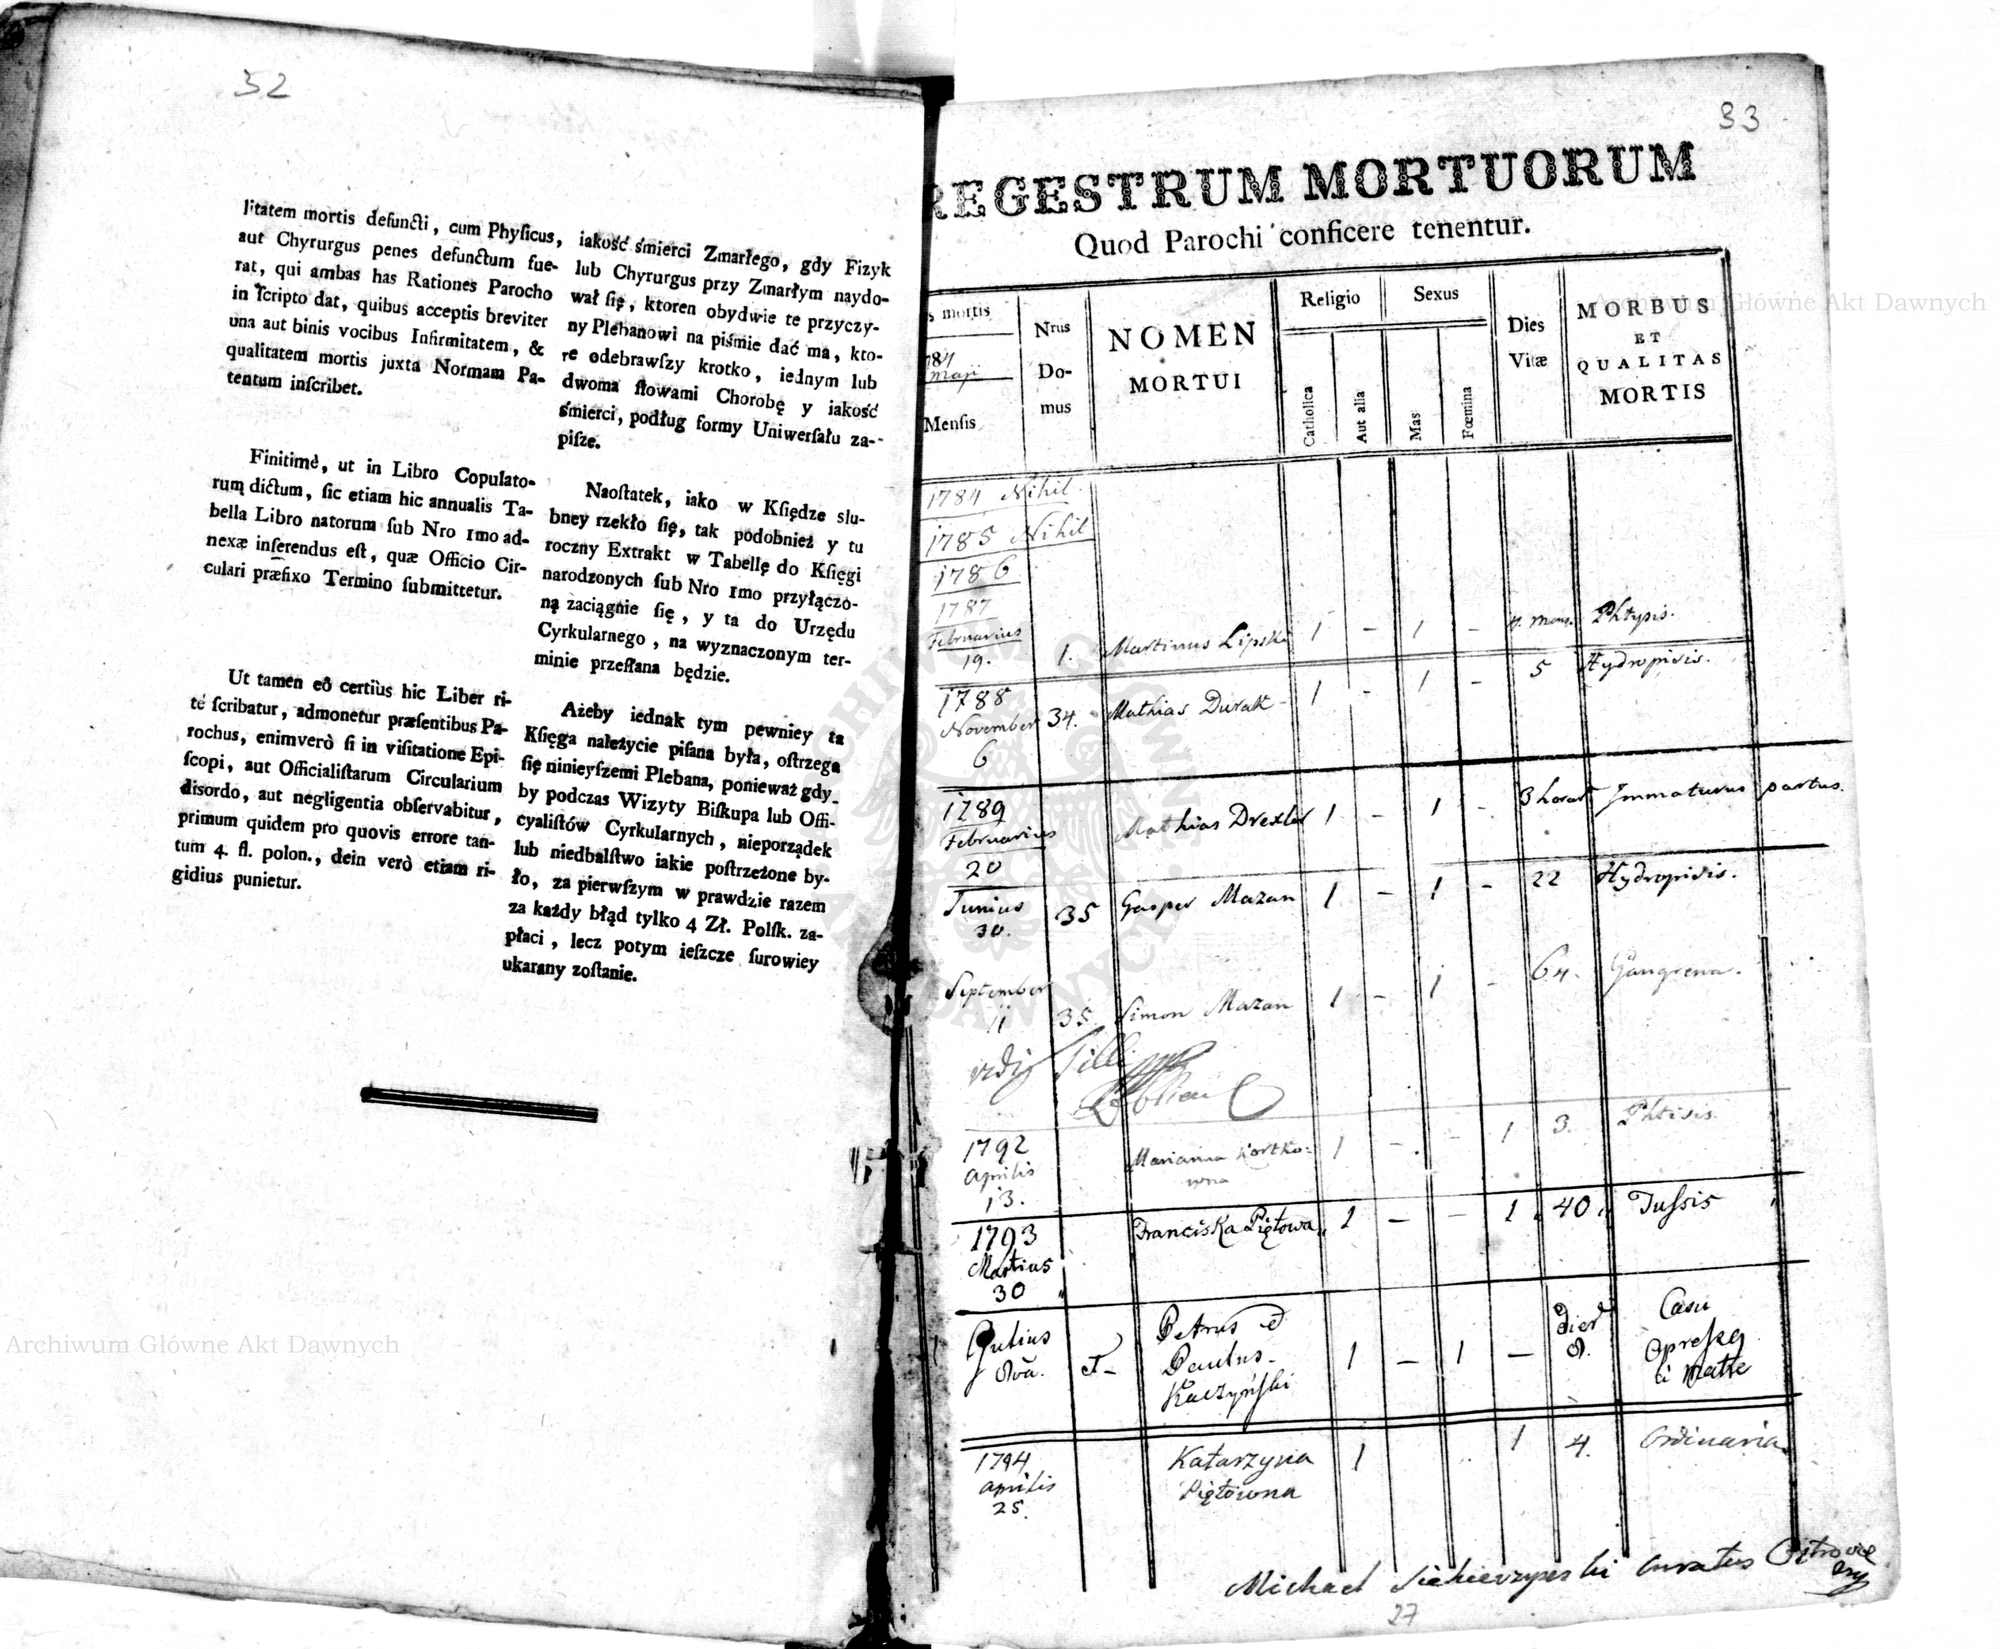 32
litatem mortis defuncti, cum Phyſicus,
aut Chyrurgus penes defunctum fue-
rat, qui ambas has Rationes Parocho
in ſcripto dat, quibus acceptis breviter
una aut binis vocibus Infirmitatem, &
qualitatem mortis juxta Normam Pa-
tentum inſcribet.
Finitimè, ut in Libro Copulato-
rum dictum, ſic etiam hic annualis Ta-
bella Libro natorum ſub Nro 1mo ad-
nexæ inſerendus eſt, quæ Officio Cir-
culari præfixo Termino ſubmittetur.
Ut tamen eò certiùs hic Liber ri-
té ſcribatur, admonetur præſentibus Pa-
rochus, enimverò ſi in viſitatione Epi-
ſcopi, aut Officialiſtarum Circularium
disordo, aut negligentia obſervabitur,
primum quidem pro quovis errore tan-
tum 4. fl. polon., dein verò etiam ri-
gidius punietur.
iakość śmierci Zmarłego, gdy Fizyk
lub Chyrurgus przy Zmarłym naydo-
wał ſię, ktoren obydwie te przyczy-
ny Plebanowi na piśmie dać ma, kto-
re odebrawſzy krotko, iednym lub
dwoma ſłowami Chorobę y iakość
śmierci, podług formy Uniwerſału za-
piſze.
Naoſtatek, iako w Kſiędze slu-
bney rzekło ſię, tak podobnież y tu
roczny Extrakt w Tabellę do Kſięgi
narodzonych ſub Nro 1mo przyłączo-
ną zaciągnie ſię, y ta do Urzędu
Cyrkularnego, na wyznaczonym ter-
minie przeſłana będzie.
Ażeby iednak tym pewniey ta
Kſięga należycie piſana była, oſtrzega
ſię ninieyſzemi Plebana, ponieważ gdy-
by podczas Wizyty Biſkupa lub Offi-
cyaliſtów Cyrkularnych, nieporządek
lub niedbalſtwo iakie poſtrzeżone by-
ło, za pierwſzym w prawdzie razem
za każdy błąd tylko 4 Zł. Polſk. za-
płaci, lecz potym ieſzcze ſurowiey
ukarany zoſtanie.
33
REGESTRUM MORTUORUM
Quod Parochi conficere tenentur.
s mortis
784
maji
Menſis
Nrus
Do-
mus
NOMEN
MORTUI
Religio
Catholica
Aut alia
Sexus
Mas
Fœmina
Dies
Vitæ
MORBUS
ET
QUALITAS
MORTIS
1784 Nihil.
1785 Nihil
1786
1787
Februarius
19. 1. Martinus Lipski 1 - 1 - Phtysis.
1788
November 34. Mathias Durak 1 - 1 - 5 Hydropisis.
6
1789
Februarius Mathias Drexler 1 - 1 - 3 horar Immaturus partus.
20
Junius 35 Gasper Mazan 1 - 1 - 22 Hydropisis.
30.
September
11 35. Simon Mazan 1 - 1 - 64. Gangrena.
1792
Aprilis Marianna Kortko-
wna 1 - - 1 3. Phtisis.
13.
1793 Franciska Piętowa 1 - - 1 40 Tuſsis
Martius
30
Julius
Petrus et
Paulus
Kaczyńſki 1 - 1 - Casu
1794
Aprilis
25.
Katarzyna
Piętowna 1 1 4. Ordinaria
Michael Siekierzyński Curatus
27
Archiwum Główne Akt Dawnych
Archiwum Główne Akt Dawnych
ARCHIWUM GŁÓWNE AKT DAWNYCH